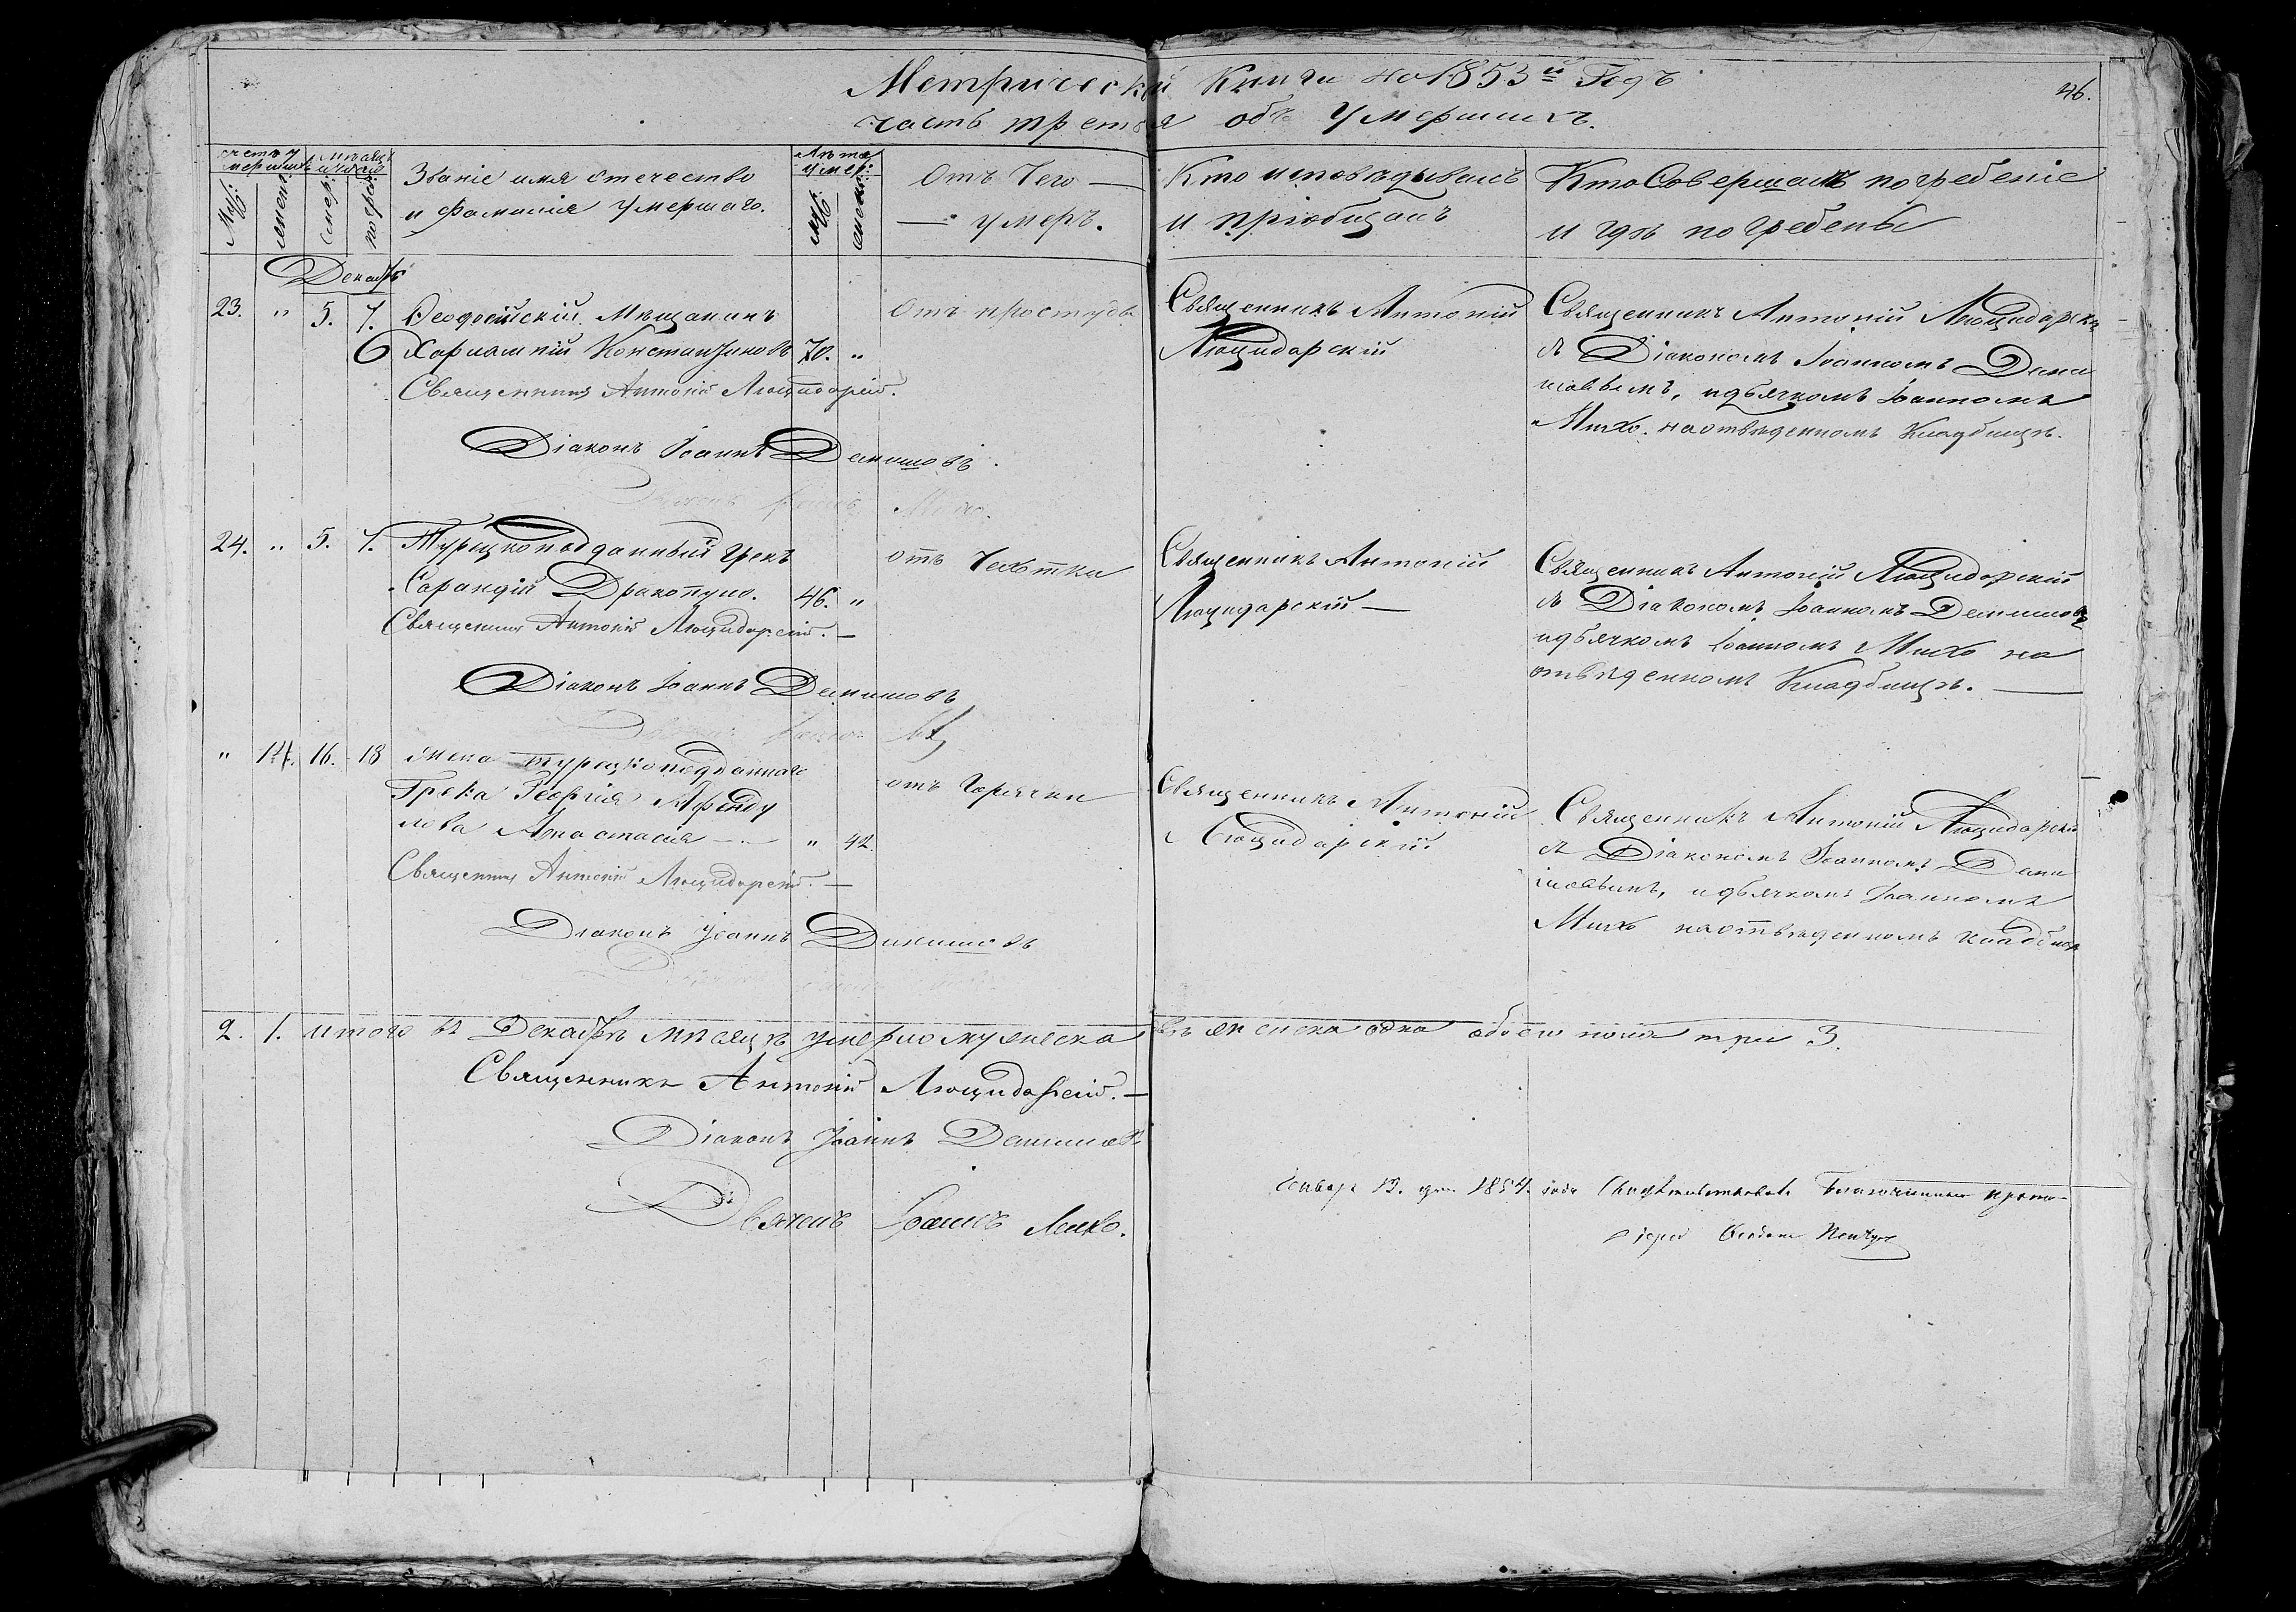 Метрической Книги на 1853й Годъ
46.
часть третья объ Умершихъ.
счетъ умершихъ
Муж:
женск:
мѣсяцъ и число
смер:
погреб:
Званіе имя отечество
и фамилія Умершаго.
Лѣта умер:
муж:
женск:
Отъ Чего —
— умеръ.
Кто исповѣдывалъ
и пріобщалъ
Кто Совершалъ погребеніе
и гдѣ погребены
Декабрь
23. " 5. 7. Феодосійскій Мѣщанинъ
Харлампій Константиновъ 70. "
Отъ простуды
Священникъ Антоній
Люцидарскій
Священникъ Антоній Люцидарскій
съ Діакономъ Іоанномъ Дани
шовымъ, и дьячкомъ Іоанномъ
Михо. на отведенномъ Кладбищѣ.
Священникъ Антоній Люцидарскій.
Діаконъ Іоаннъ Данишовъ.
Михо.
24. " 5. 7. Турецкоподданный Грекъ
Сарандій Дракопуло. 46. "
отъ Чехотки
Священникъ Антоній
Люцидарскій —
Священникъ Антоній Люцидарскій
съ Діакономъ Іоанномъ Данишовъ
и дьячкомъ Іоанномъ Михо на
отведенномъ Кладбищѣ. —
Священникъ Антоній Люцидарскій. —
Діаконъ Іоаннъ Данишовъ
" 14. 16. 18 жена турецкоподданнаго
Грека Георгія Афенду
лова Анастасія — " 42.
отъ Горячки
Священникъ Антоній
Люцидарскій.
Священникъ Антоній Люцидарскій
съ Діакономъ Іоанномъ Дани
шовымъ, и дьячкомъ Іоанномъ
Михо на отведенномъ кладбищѣ
Священникъ Антоній Люцидарскій. —
Діаконъ Іоаннъ Данишовъ
2. 1. итого въ Декабрѣ мѣсяцѣ умерло мужеска два женска одна обоего пола три 3.
Священникъ Антоній Люцидарскій. —
Діаконъ Іоаннъ Данишовъ
Дьячекъ Іоаннъ Михо.
Генваря 13. дня 1854. года Свидѣтельствовалъ Благочинный прото-
іерей